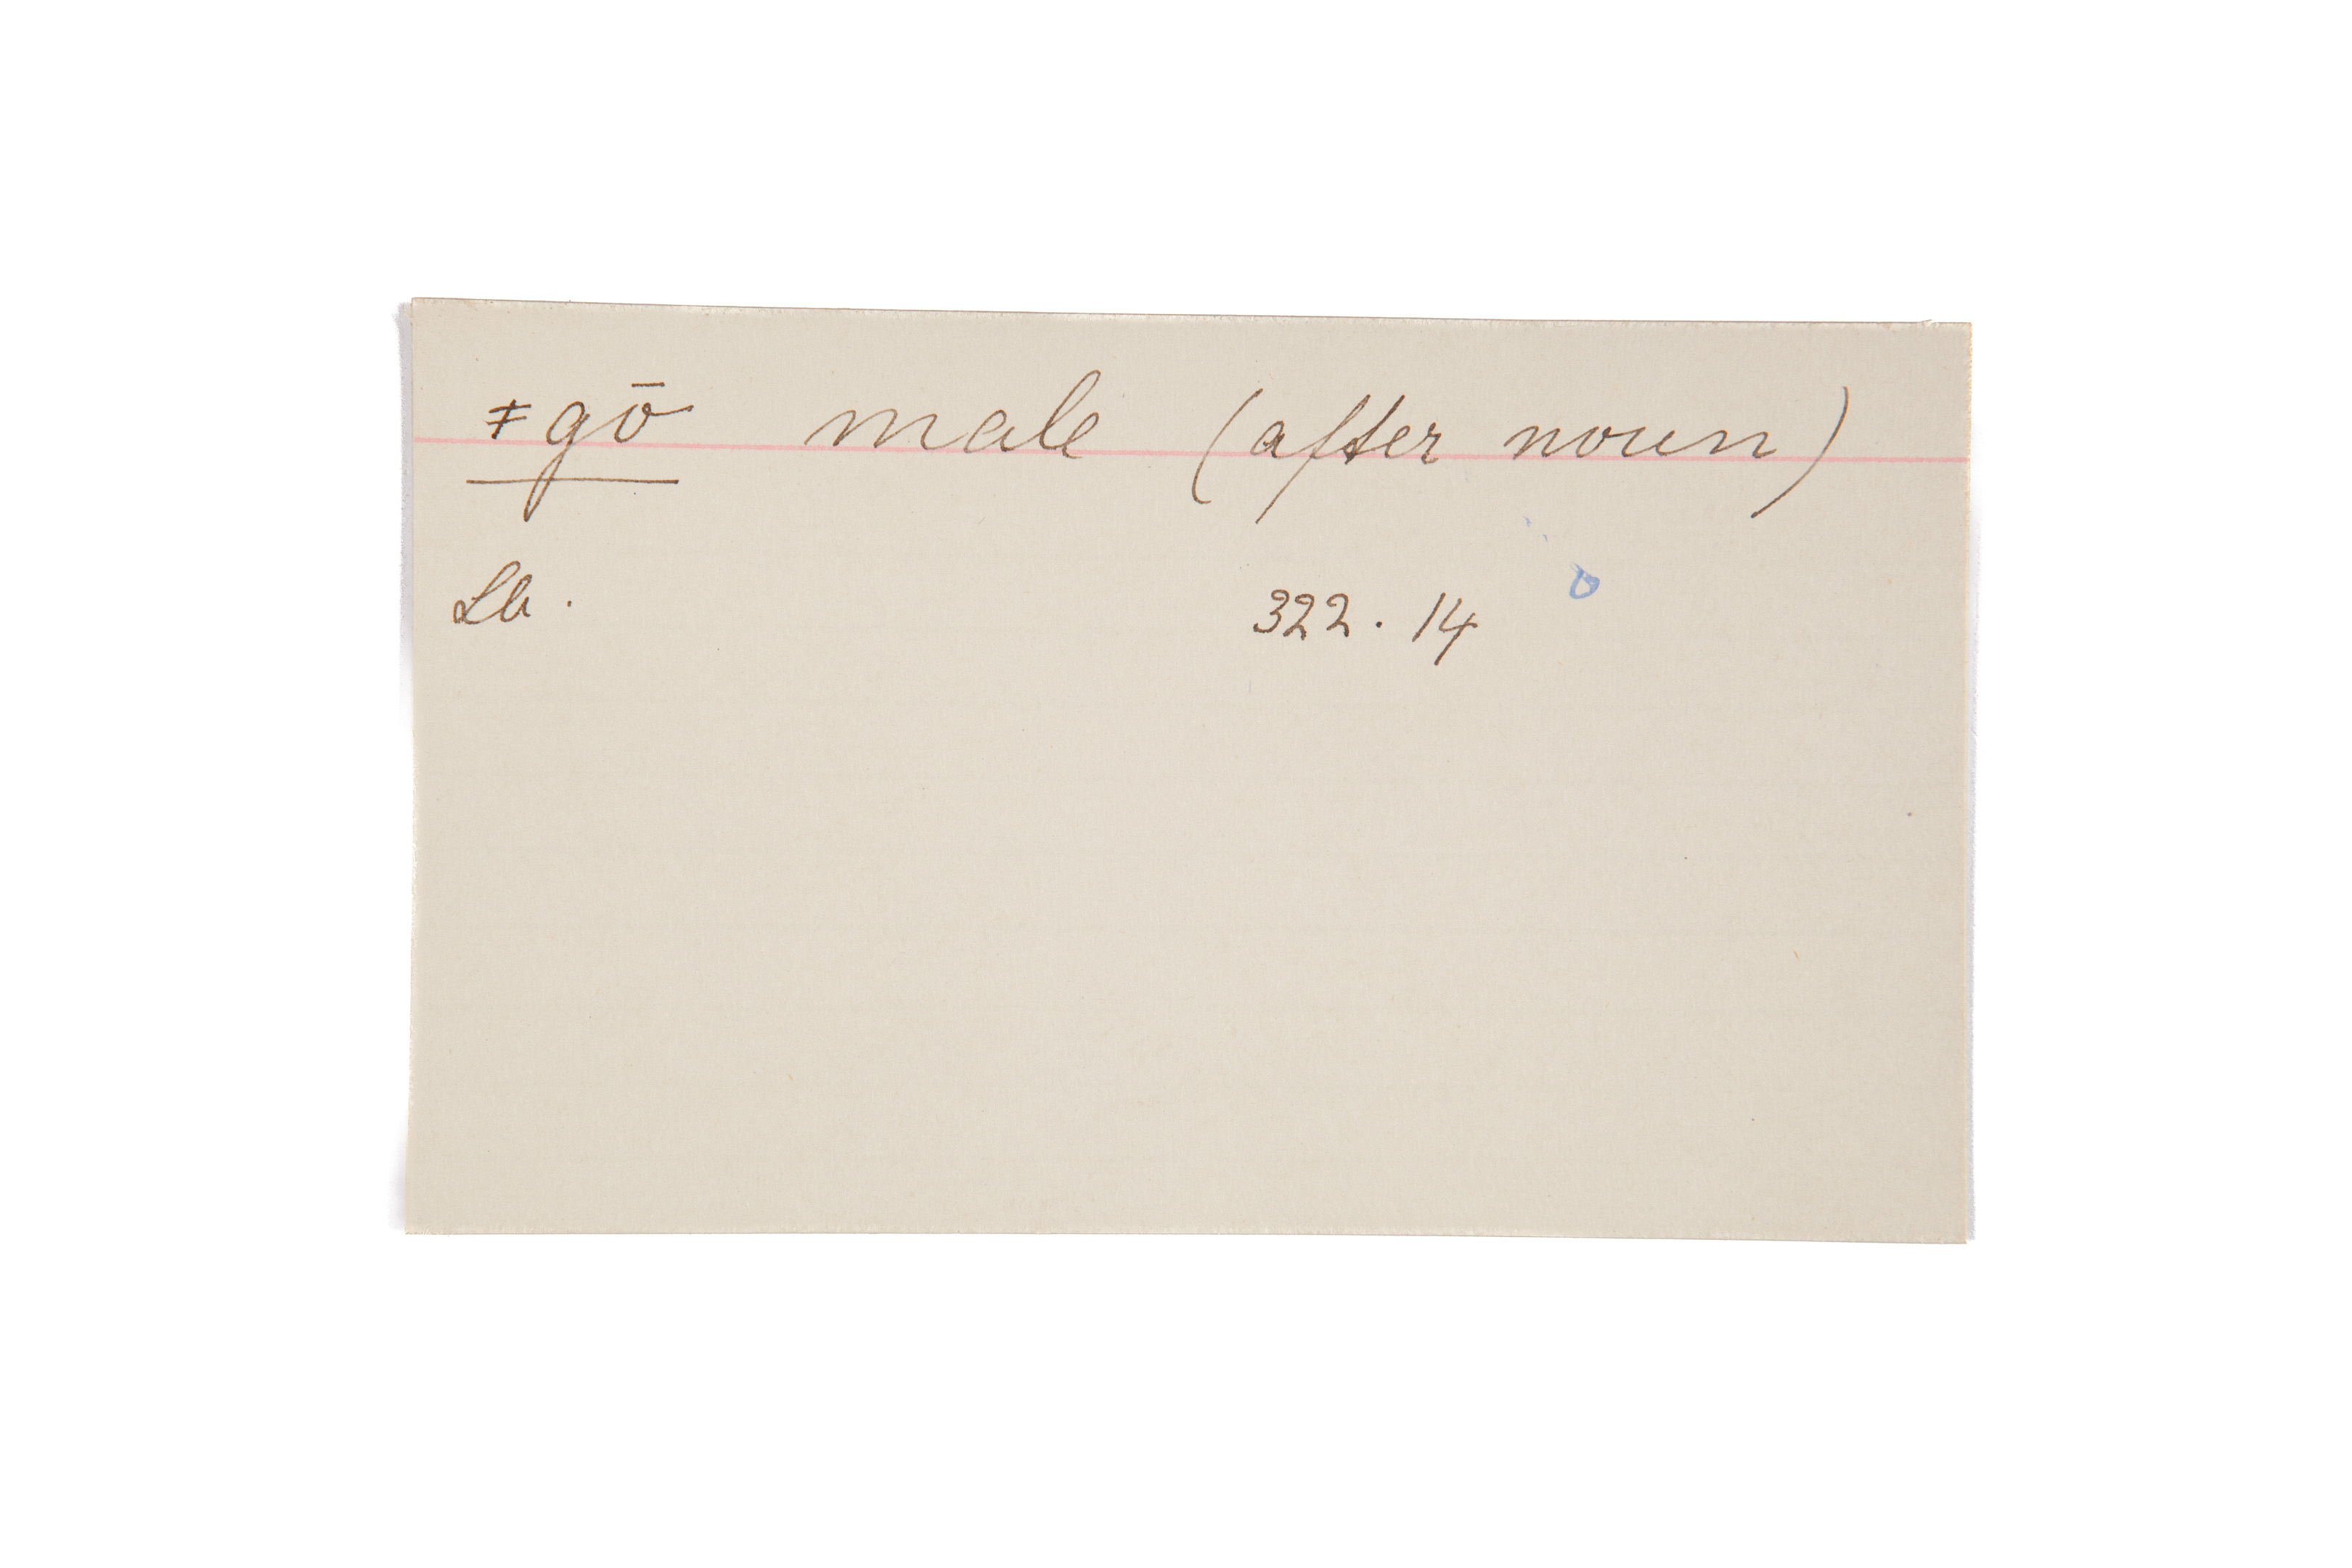 ǂgō male (after noun)
Lb. 322. 14